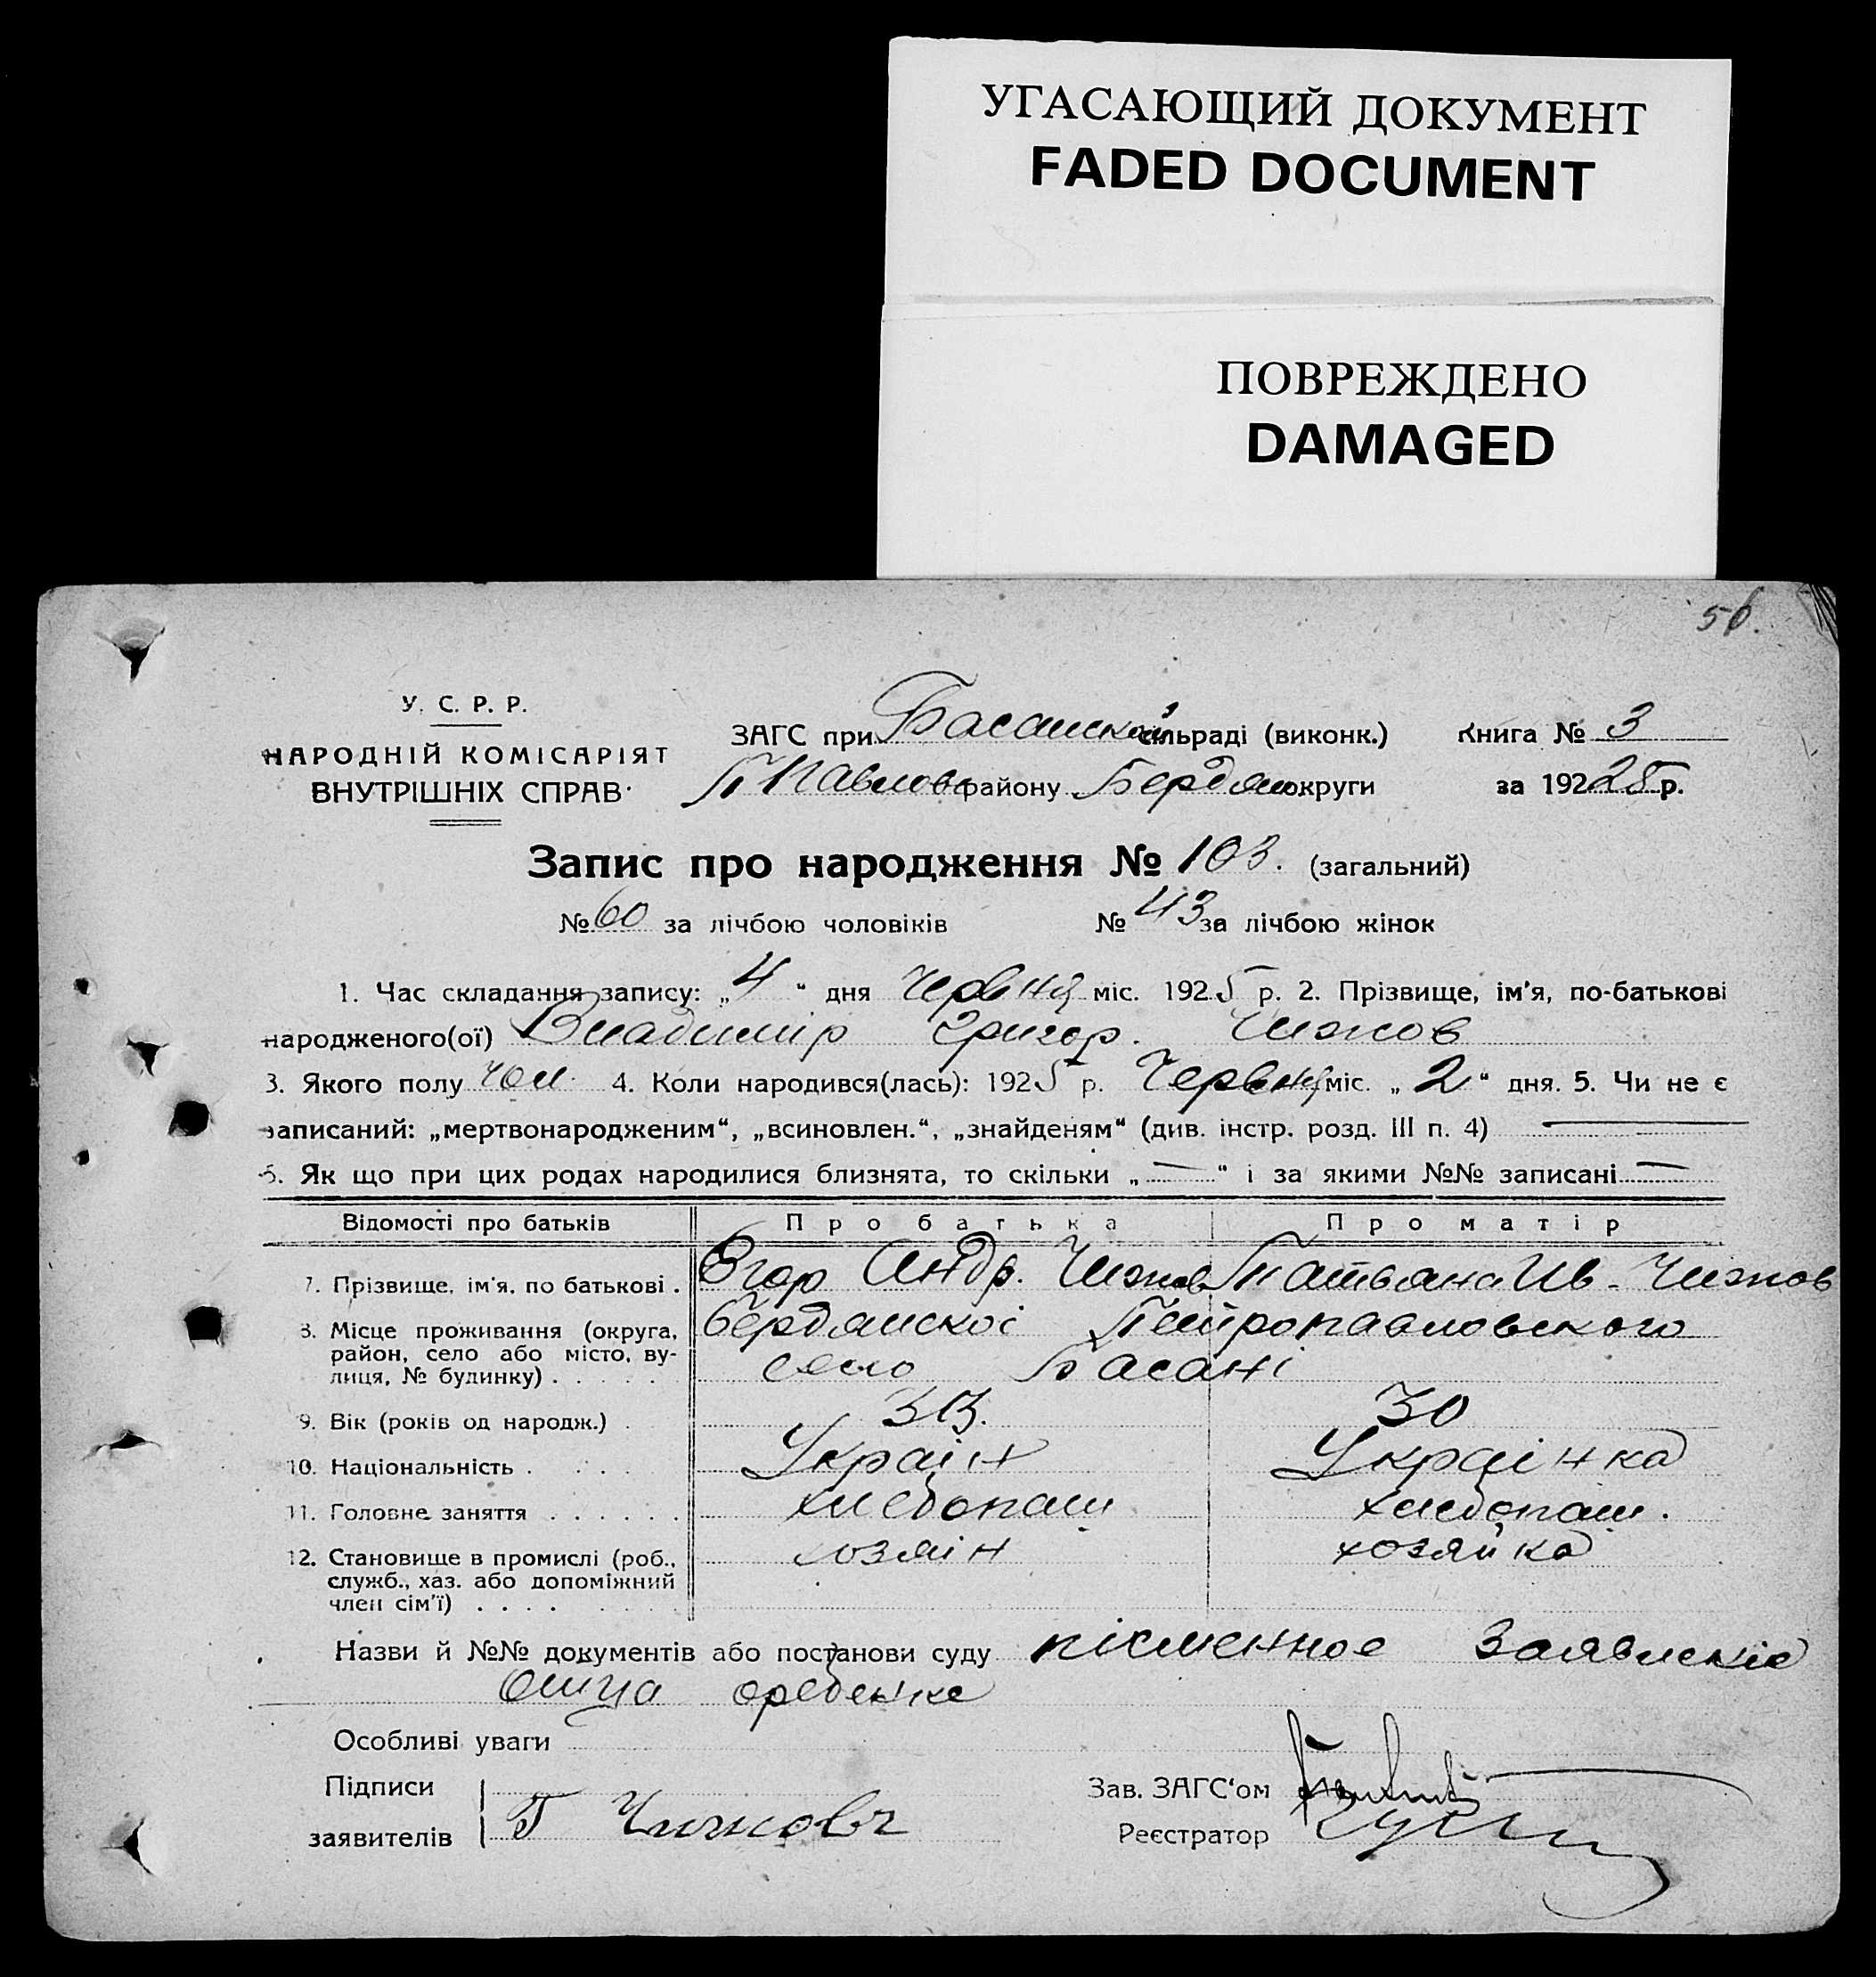 УГАСАЮЩИЙ ДОКУМЕНТ
FADED DOCUMENT
ПОВРЕЖДЕНО
DAMAGED
56.
У. С. Р. Р.
НАРОДНІЙ КОМІСАРІЯТ
ВНУТРІШНІХ СПРАВ
ЗАГС при Басанской сільраді (виконк.) Книга № 3
П Павлово району Бердян округи за 192 25 р.
Запис про народження № 103. (загальний)
№ 60 за лічбою чоловіків № 43 за лічбою жінок
1. Час складання запису: „4“ дня Червня міс. 1925 р. 2. Прізвище, ім'я, по-батькові
народженого(ої) Владимір Григор. Чижов
3. Якого полу чол. 4. Коли народився(лась): 1925 р. Червня міс. „2“ дня. 5. Чи не є
записаний: „мертвонародженим“, „всиновлен.“, „знайденям“ (див. інстр. розд. III п. 4) —
6. Як що при цих родах народилися близнята, то скільки „—“ і за якими №№ записані —
Відомості про батьків Про батька Про матір
7. Прізвище, ім'я, по батькові . Егор Андр. Чижов Татьяна Ив. Чижов
8. Місце проживання (округа, Бердянскоі Петропавловского
район, село або місто, ву- село Басані
лиця, № будинку) . . . . .
9. Вік (років од народж.) . 33. 30
10. Національність . . . . Украін Украінка
11. Головне заняття . . . . . . хлебопаш хлебопаш.
12. Становище в промислі (роб., хозяін хозяйка
служб., хаз. або допоміжний
член сім'ї) . . . .
Назви й №№ документів або постанови суду пісменное Заявленіе
отца
Особливі уваги
Підписи Зав. ЗАГС'ом
заявителів Г Чижовъ Реєстратор